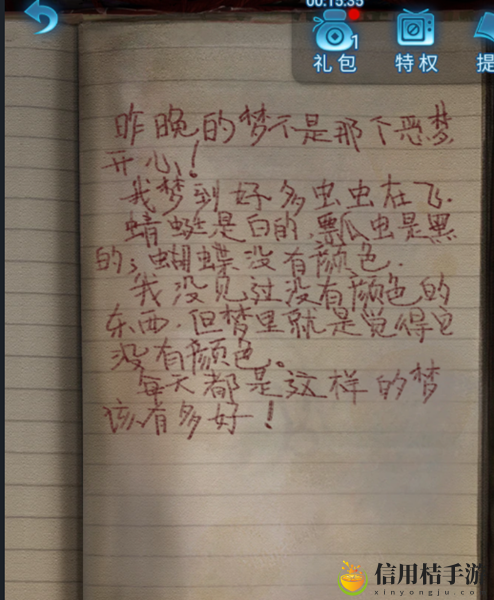 00:15:35
1
礼包
特权
提
昨晚的梦不是那个恶梦
开心!
我梦到好多虫虫在飞.
蜻蜓是白的,瓢虫是黑
的;蝴蝶没有颜色.
我没见过没有颜色的
东西.但梦里就是觉得它
没有颜色。
每天都是这样的梦
该有多好!
信用桔手游
xinyongju.co